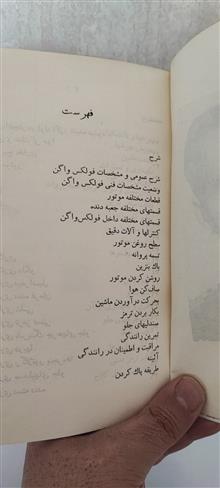 فهرست
شرح
شرح عمومی و مشخصات فولکس واگن
وضعیت مشخصات فنی فولکس واگن
قطعات مختلفه موتور
قسمتهای مختلفه جعبه دنده
قسمتهای مختلفه داخل فولکس‌واگن
کنترلها و آلات دقیق
سطح روغن موتور
تسمه پروانه
باك بنزین
روشن کردن موتور
صاف‌کن هوا
بحرکت درآوردن ماشین
بکار بردن ترمز
صندلیهای جلو
تمرین رانندگی
مراقبت و اطمینان در رانندگی
آئینه
طریقه پاك کردن